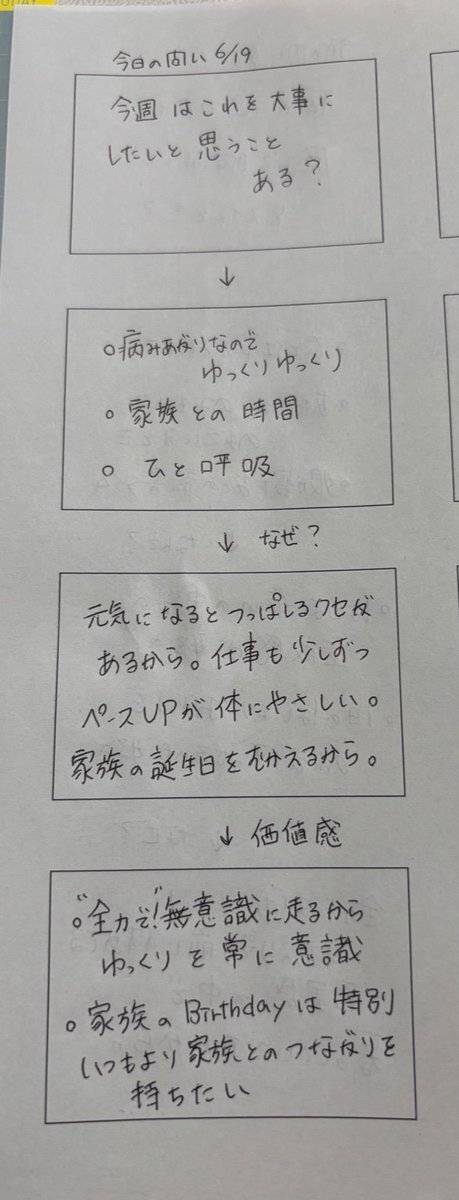 今日の問い 6/19
今週はこれを大事に
したいと思うこと
ある？
↓
○病みあがりなので
ゆっくりゆっくり
○ 家族との時間
○ ひと呼吸
↓ なぜ？
元気になるとつっぱしるクセが
あるから。仕事も少しずつ
ペースUPが体にやさしい。
家族の誕生日をむかえるから。
↓ 価値感
○"全力で!"無意識に走るから
ゆっくりを常に意識
○ 家族のBirthdayは特別
いつもより家族とのつながりを
持ちたい